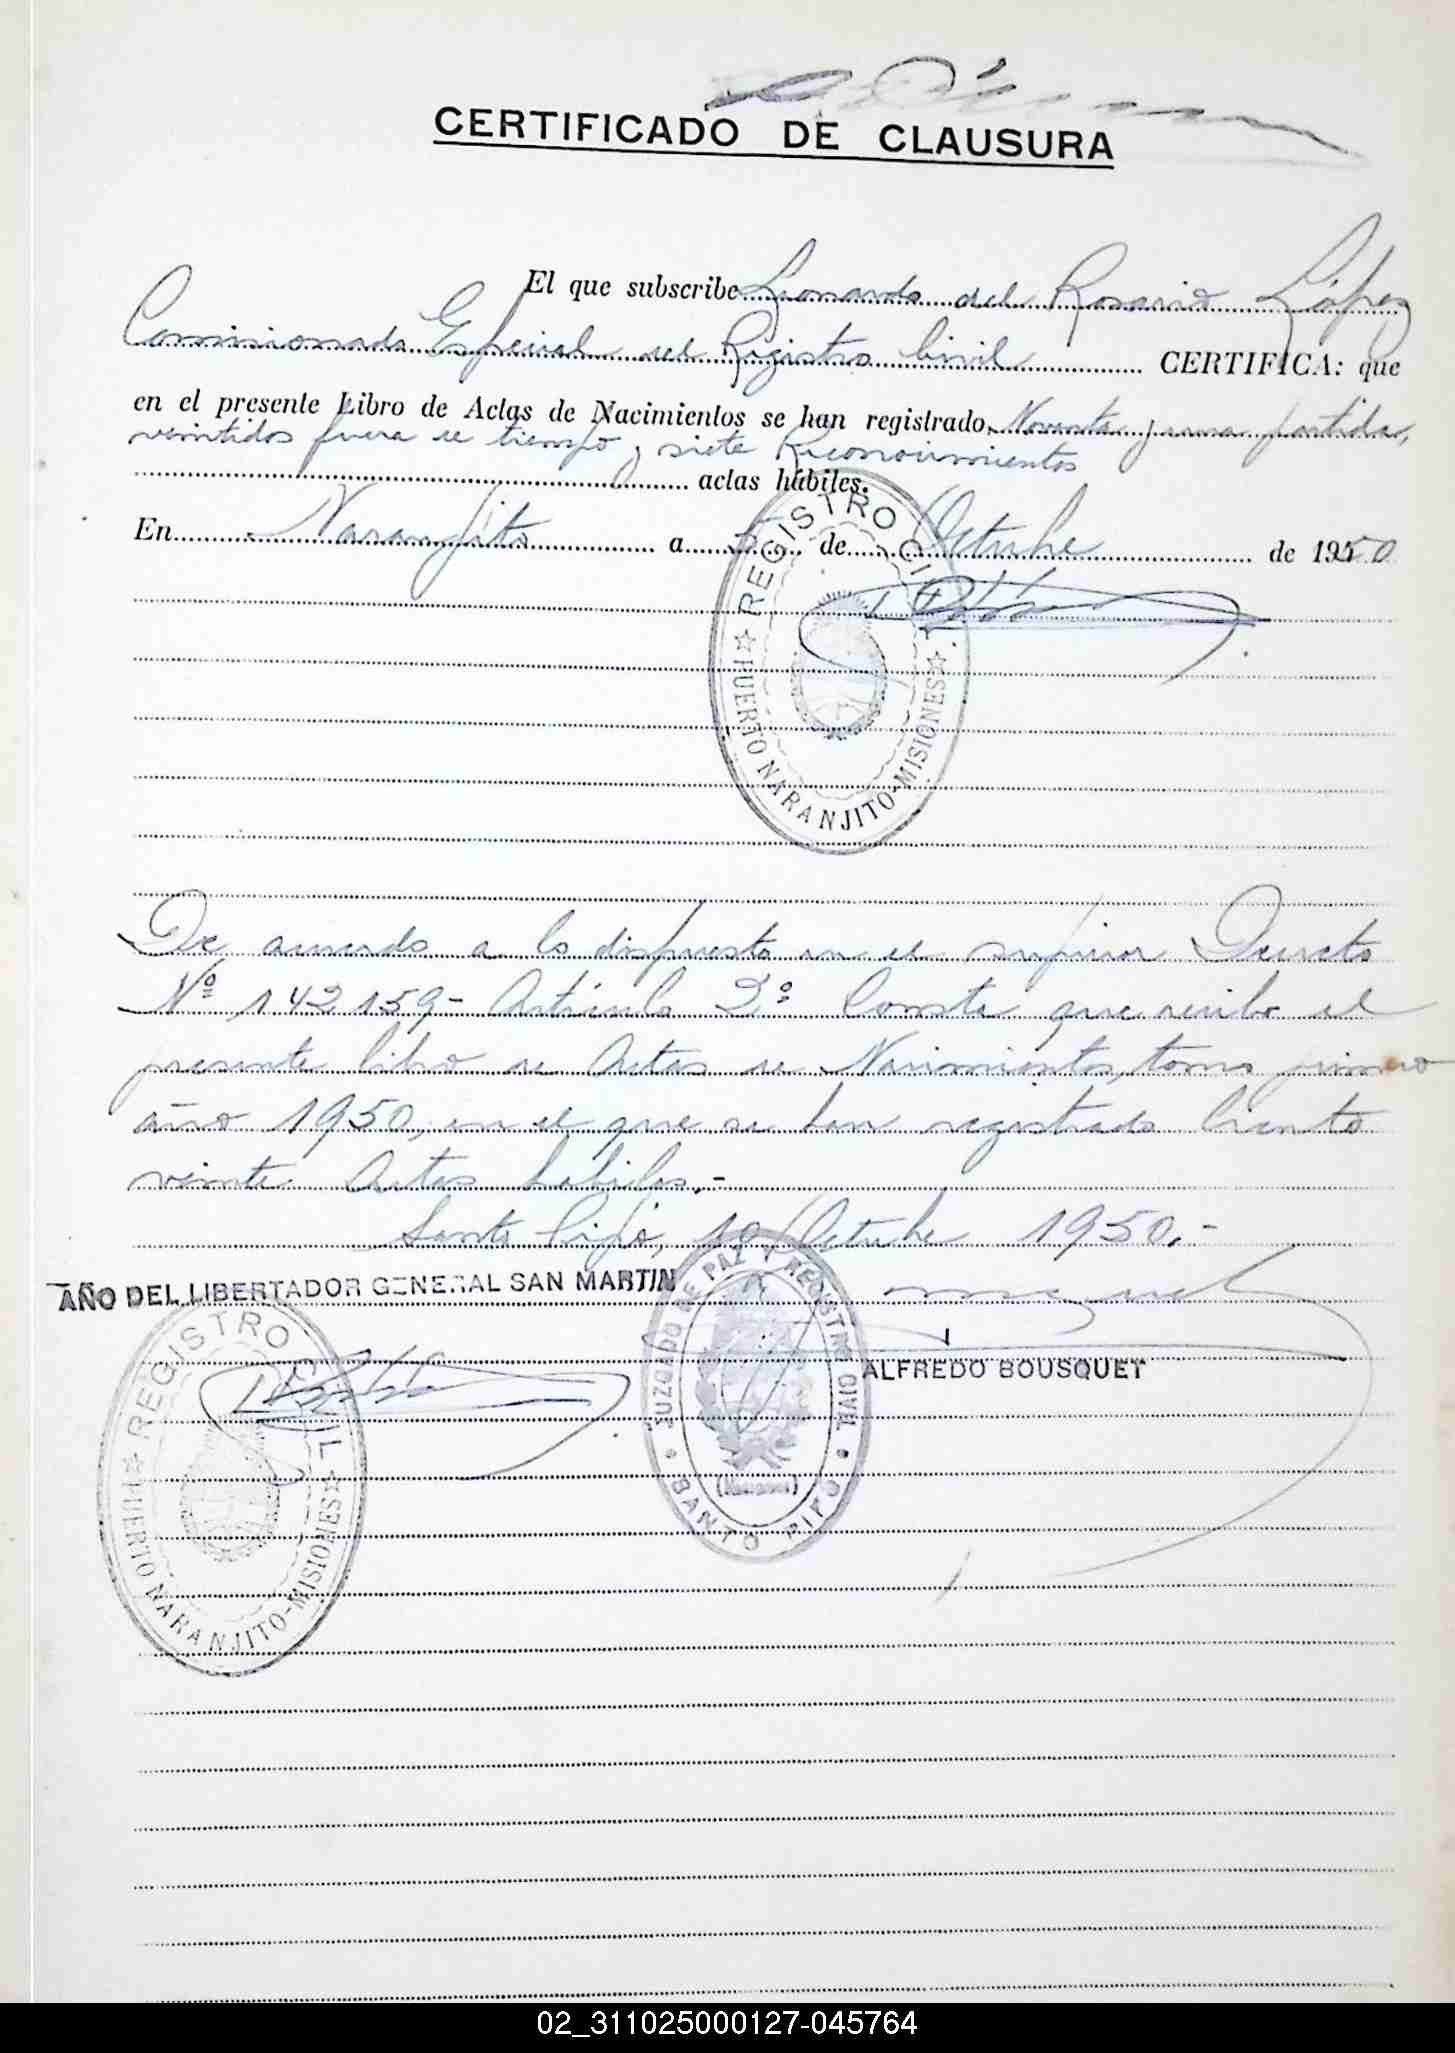 CERTIFICADO DE CLAUSURA
El que subscribe Leonardo del Rosario López
Comisionado Especial del Registro Civil CERTIFICA: que
en el presente Libro de Actas de Nacimientos se han registrado, Noventa y una partidas,
veintidos fuera de tiempo y siete Reconocimientos
actas hábiles.
En Naranjito a 5 de Octubre de 1950
REGISTRO CIVIL
PUERTO NARANJITO-MISIONES
De acuerdo a lo dispuesto en el superior Decreto
Nº 142159- Artículo 2º Consta que recibo el
presente libro de Actas de Nacimientos, tomo primero
año 1950, en el que se han registrado Ciento
veinte Actas habiles.-
Santo Pipó, 10 Octubre 1950.-
AÑO DEL LIBERTADOR GENERAL SAN MARTIN
ALFREDO BOUSQUET
REGISTRO CIVIL
PUERTO NARANJITO-MISIONES
JUZGADO DE PAZ Y REGISTRO CIVIL
(Misiones)
SANTO PIPÓ
02_311025000127-045764